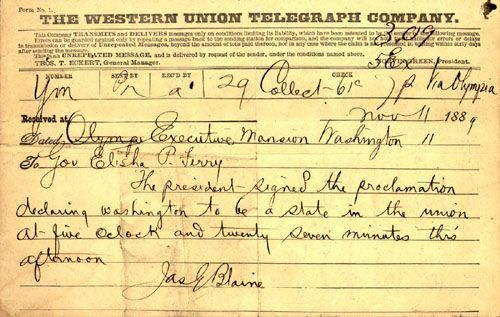 Form No. 1.
THE WESTERN UNION TELEGRAPH COMPANY.
This Company TRANSMITS and DELIVERS messages only on conditions limiting its liability, which have been assented to by the sender of the following message.
Errors can be guarded against only by repeating a message back to the sending station for comparison, and the company will not hold itself liable for errors or delays
in transmission or delivery of Unrepeated Messages, beyond the amount of tolls paid thereon, nor in any case where the claim is not presented in writing within sixty days
after sending the message.
This is an UNREPEATED MESSAGE, and is delivered by request of the sender, under the conditions named above.
THOS. T. ECKERT, General Manager. GREEN, President.
NUMBER SENT BY REC'D BY CHECK
Ym a 29 Collect 61c Via Olympia
Received at Nov 11 1889
Dated Olympia Executive Mansion Washington 11
To Gov Elisha P. Ferry
The president signed the proclamation
declaring washington to be a state in the union
at five oclock and twenty seven minutes this
afternoon
Jas G Blaine